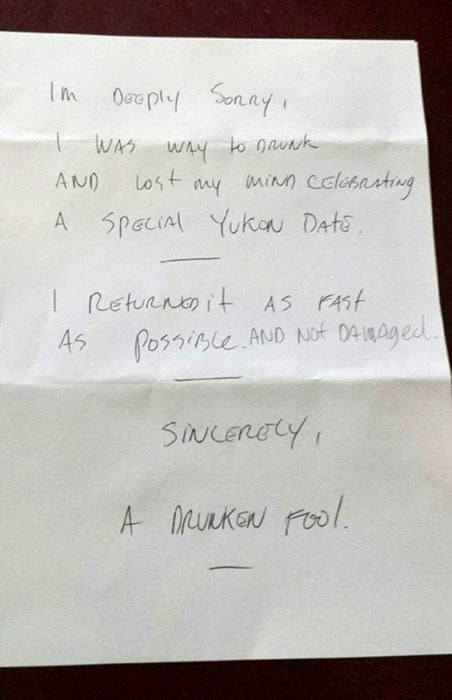 Im Deeply Sorry,
I WAS WAY to DRUNK
AND Lost my MIND CELEBRAting
A SPECIAL YUKON DATE.
I RETURNED it AS FAST
AS Possible. AND Not DAMAged.
SINCERELY,
A DRUNKEN FOOl.